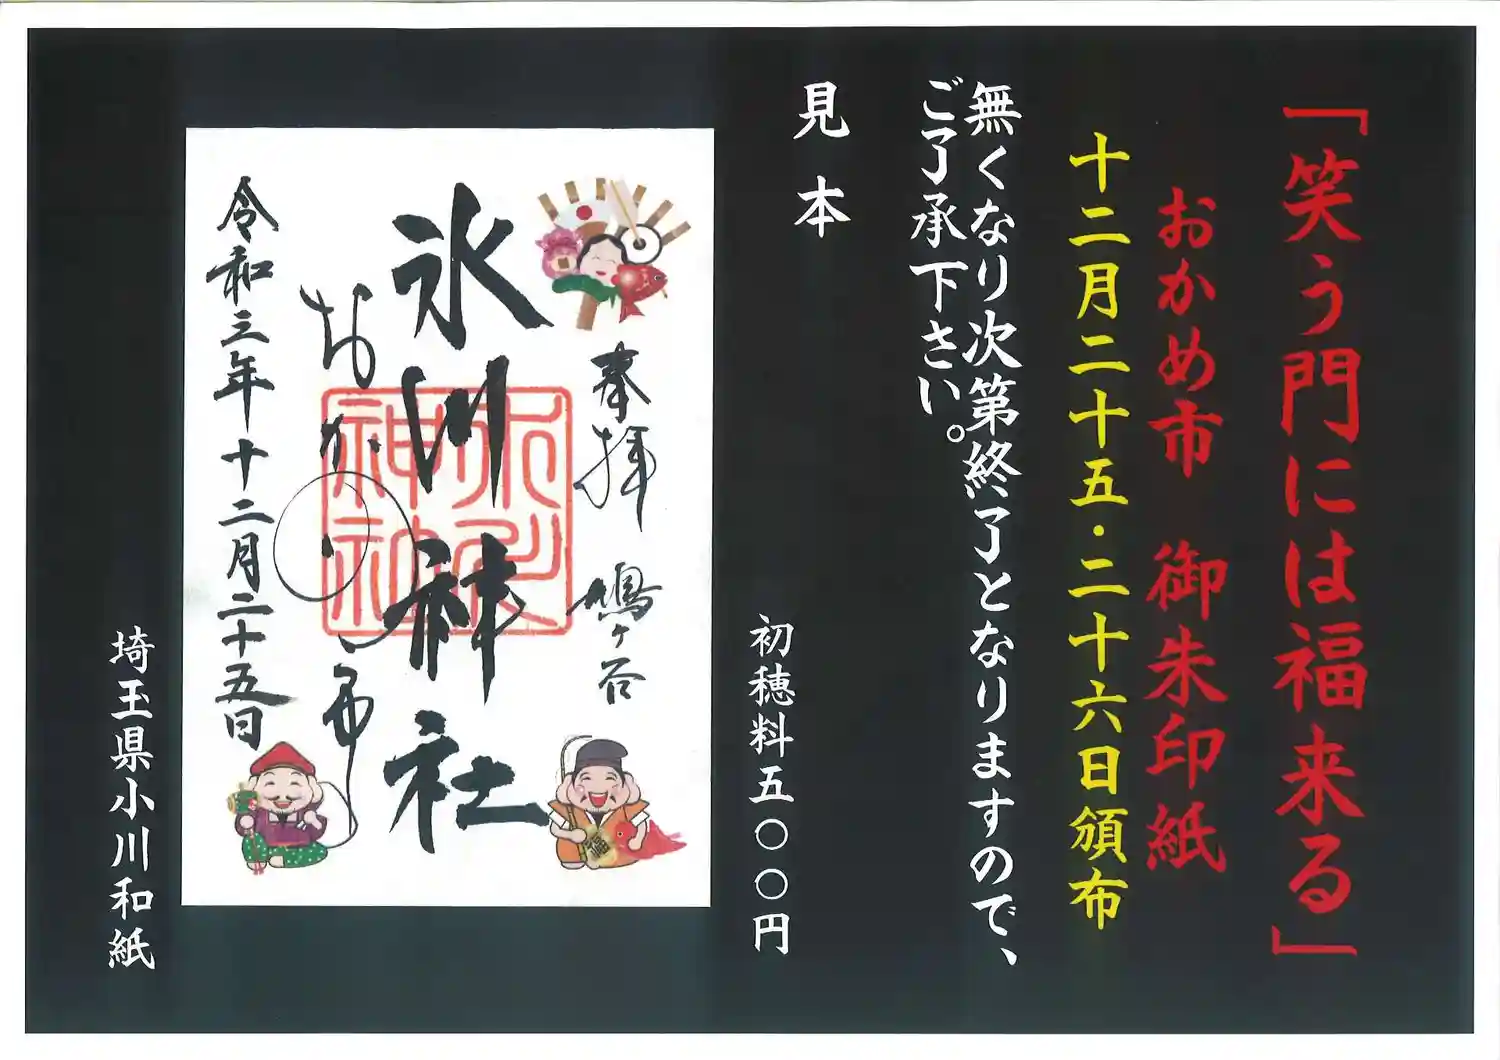 「笑う門には福来る」
おかめ市 御朱印紙
十二月二十五・二十六日頒布
無くなり次第終了となりますので、
ご了承下さい。
見本
初穂料五〇〇円
奉拝 鳩ヶ谷
氷川神社
氷川神社
おかめ市
令和三年十二月二十五日
福
埼玉県小川和紙